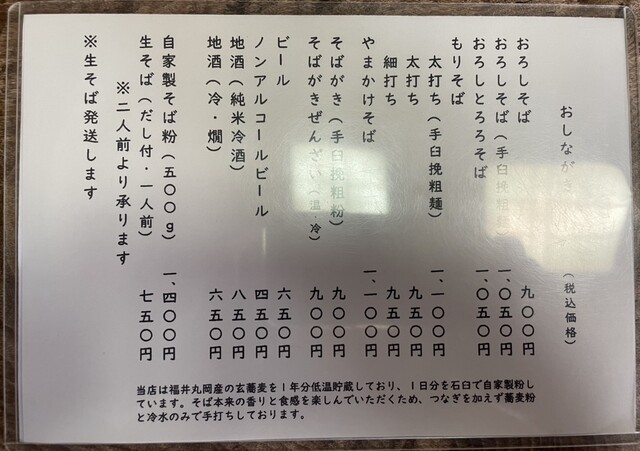 おしながき
(税込価格)
おろしそば 九〇〇円
おろしそば(手臼挽粗麺) 一、〇五〇円
おろしとろろそば 一、〇五〇円
もりそば
太打ち(手臼挽粗麺) 一、一〇〇円
太打ち 九五〇円
細打ち 九五〇円
やまかけそば 一、一〇〇円
そばがき(手臼挽粗粉) 九〇〇円
そばがきぜんざい(温・冷) 九〇〇円
ビール 六五〇円
ノンアルコールビール 四五〇円
地酒(純米冷酒) 八五〇円
地酒(冷・燗) 六五〇円
自家製そば粉(五〇〇g) 一、四〇〇円
生そば(だし付・一人前) 七五〇円
※二人前より承ります
※生そば発送します
当店は福井丸岡産の玄蕎麦を1年分低温貯蔵しており、1日分を石臼で自家製粉し
ています。そば本来の香りと食感を楽しんでいただくため、つなぎを加えず蕎麦粉
と冷水のみで手打ちしております。